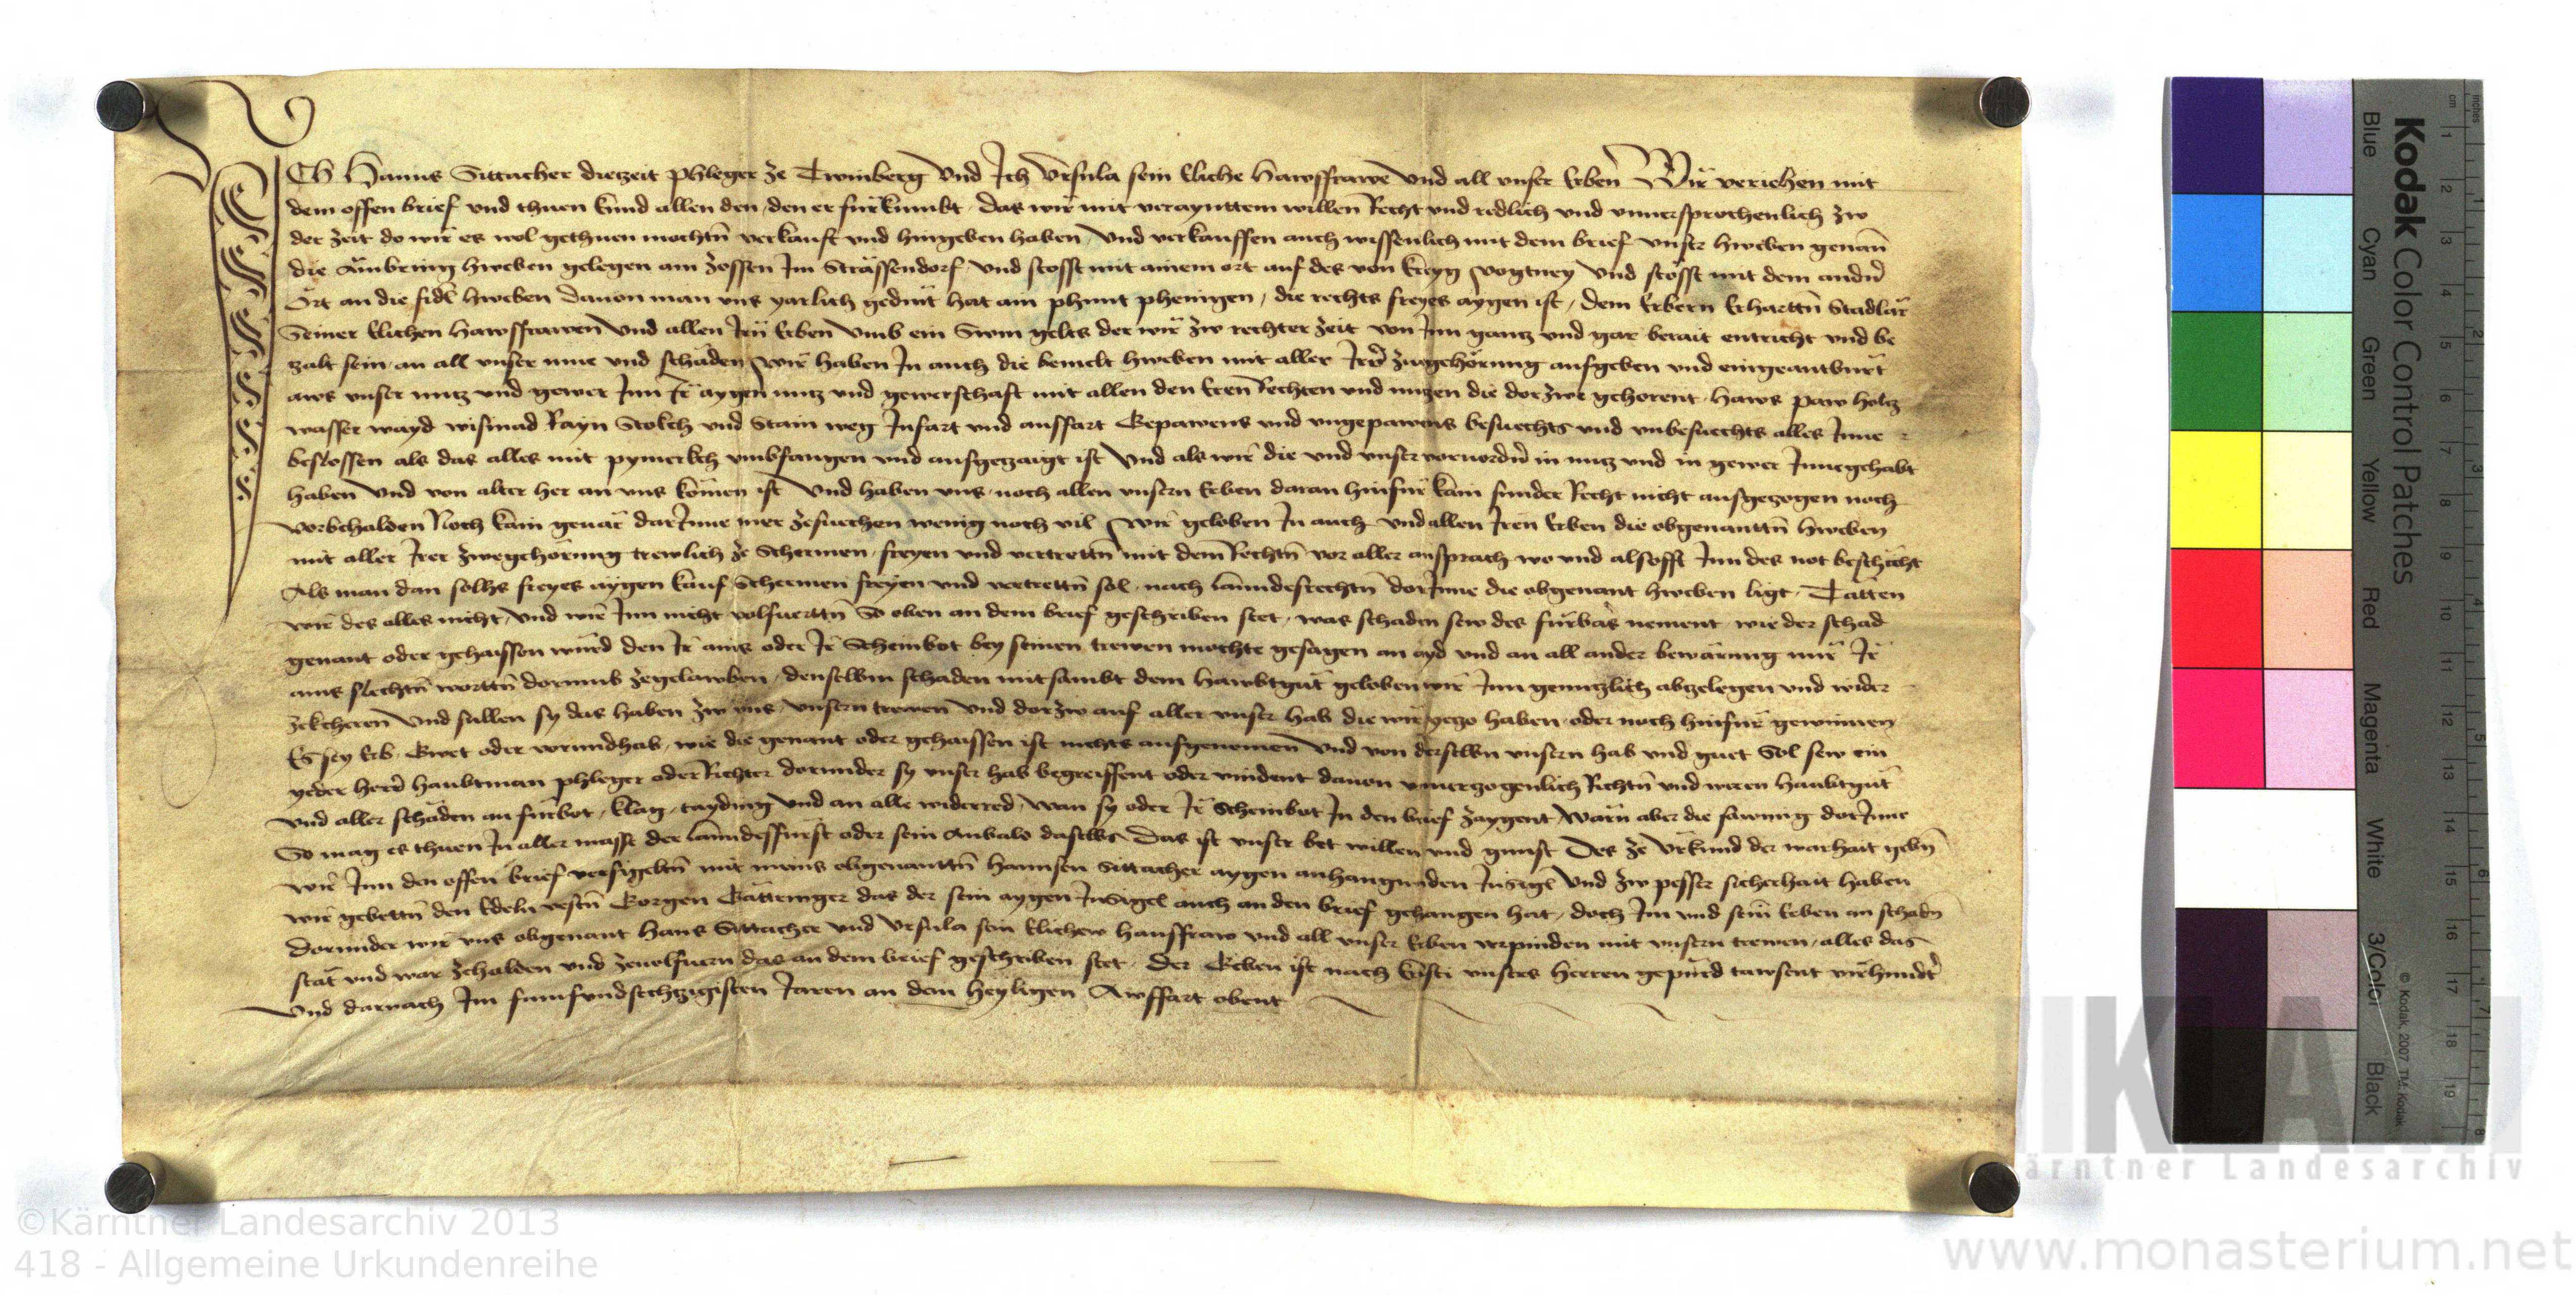 ICh Hanns Sittacher diezeit phleger ze Twinberg vnd Ich Vrsula sein eliche hawsffrawe vnd all vnser Erben Wir veriehen mit
dem offen brief vnd thuen kund allen den, den er fürkumbt, das wir mit veraynttem willen Recht vnd redlich vnd vnuersprochenlich zw
der zeit do wir es wol gethuen mochtn̄ verkauft vnd hingeben haben, vnd verkauffen auch wissenlich mit dem brief vnser hweben genan̄
die hweben gelegen am zossen Im Strassendorf vnd stosst mit ainem ort auf des von kreyg vogtney vnd stosst mit dem andn̄
Ort an die sidl hweben dauon man vns yarlich gedint hat ain phunt pheningen, die rechts freyes aygen ist, dem Erbern Erharttn̄ Stadlär
Seiner elichen hawsffrawen vnd allen Irn̄ Erben vmb ein Swm gelts der wir zw rechter zeit von Inn gantz vnd gar berait entricht vnd be
zalt sein an all vnser mue vnd schäden wir haben In auch die bemelt hweben mit aller Irer̄ zuegehörung aufgeben vnd eingeantburt
aws vnser nutz vnd gewer Inn Ir aygen nutz vnd gewerschaft mit allen den Eren Rechten vnd nutzen die dorzwe gehorent, haws paw holtz
wasser wayd wismad Rayn Stokch vnd Stain weg Infart vnd ausffart Gepawens vnd vngepawens besuechts vnd vnbesuechts alles Inne
beslossen als das alles mit pymerkch vmbfangen vnd ausgezaigt ist vnd als wir die vnd vnser voruordn̄ in nutz vnd in gewer Innegehabt
haben vnd von alter her an vns kömen ist vnd haben vns, noch allen vnsern Erben daran hinfür kain sunder Recht nicht ausgezogen noch
vorbehalden Noch kain geuär darInne mer zesuechen wenig noch vil wir geloben In auch vnd allen Iren Erben die obgenanttn̄ hweben
mit aller Irer zwegehörung trewlich ze Schermen, freyen vnd vertrettn̄ mit dem Rechtn̄ vor aller ansprach wo vnd alsofft Inn des not beschicht
Als man dan solhs freyes aygen kauf Schermen freyen vnd vertrettn̄ sol, nach lanndesrechtn̄ dorInne die obgenant hweben ligt, Tätten
wir des alles nicht, vnd wir Inn nicht volfuerttn̄ So oben an dem brief geschriben stet, was schaden sew des fürbas nement, wie der schad
genant oder gehaissen würd den Ir ains oder Ir Scheinbot bey seinen trewen mochte gesagen an ayd vnd an all ander bewärung nür Ir
ains slechtn̄ worttn̄ dorumb zegelawben, denselben schaden mitsambt dem hawbtgut geloben wir Inn genntzlich abzelegen vnd wider
zekcheren vnd sullen sy das haben zw vns, vnsern trewen vnd dorzw auf aller vnser hab die wir yezo haben, oder noch hinfür gewinnen
Es sey Erb, Gwet oder vorundhab, wie die genant oder gehaissen ist nichts ausgenomen vnd von derselbn vnsern hab vnd guet Sol sew ein
yeder herr̄ haubtman phleger oder Richter dorunder sy vnser hab begreiffent oder vindent dauon vnuerzogenlich Richtn̄ vnd weren haubtgut
vnd aller schäden an fürbot, klag, tayding vnd an alle widerred wan sy oder Ir Scheinbot In den brief zaygent wärn aber die sawmig dorInne
So mag es thuen In aller masse der lanndesffürst oder sein Anbalt daselbs Das ist vnser bet willen vnd gunst Des ze Vrkund der warhait gebn̄
wir Inn den offen brief versigeltn̄ mit meins obgenanttn̄ hannsen Sittacher aygen anhangunden Insigl vnd zw pesser sicherhait haben
wir gebettn̄ den Edeln vestn̄ Gorgen Gätteringer das der sein aygen Insigel auch an den brief gehangen hat, doch Im vnd sein̄ Erben an schadn̄
dorunder wir vns obgenant hans Sittacher vnd Vrsula sein elichew hausffraw vnd all vnser Erben verpinden mit vnsern trewen, alles das
stät vnd war zehalden vnd zeuolfuern das an dem brief geschriben stet, Der Geben ist nach kristi vnsers herren gepürd tawsent vierhundt̄
vnd darnach Im funfvndsechtzigisten Jaren an dem heyligen Awffart obent
Kodak Color Control Patches
Blue Cyan Green Yellow Red Magenta White 3/Color Black
© Kodak, 2007 TM: Kodak
cm 1 2 3 4 5 6 7 8 9 10 11 12 13 14 15 16 17 18 19
inches 1 2 3 4 5 6 7 8
KLA
Kärntner Landesarchiv
©Kärntner Landesarchiv 2013
418 - Allgemeine Urkundenreihe
www.monasterium.net